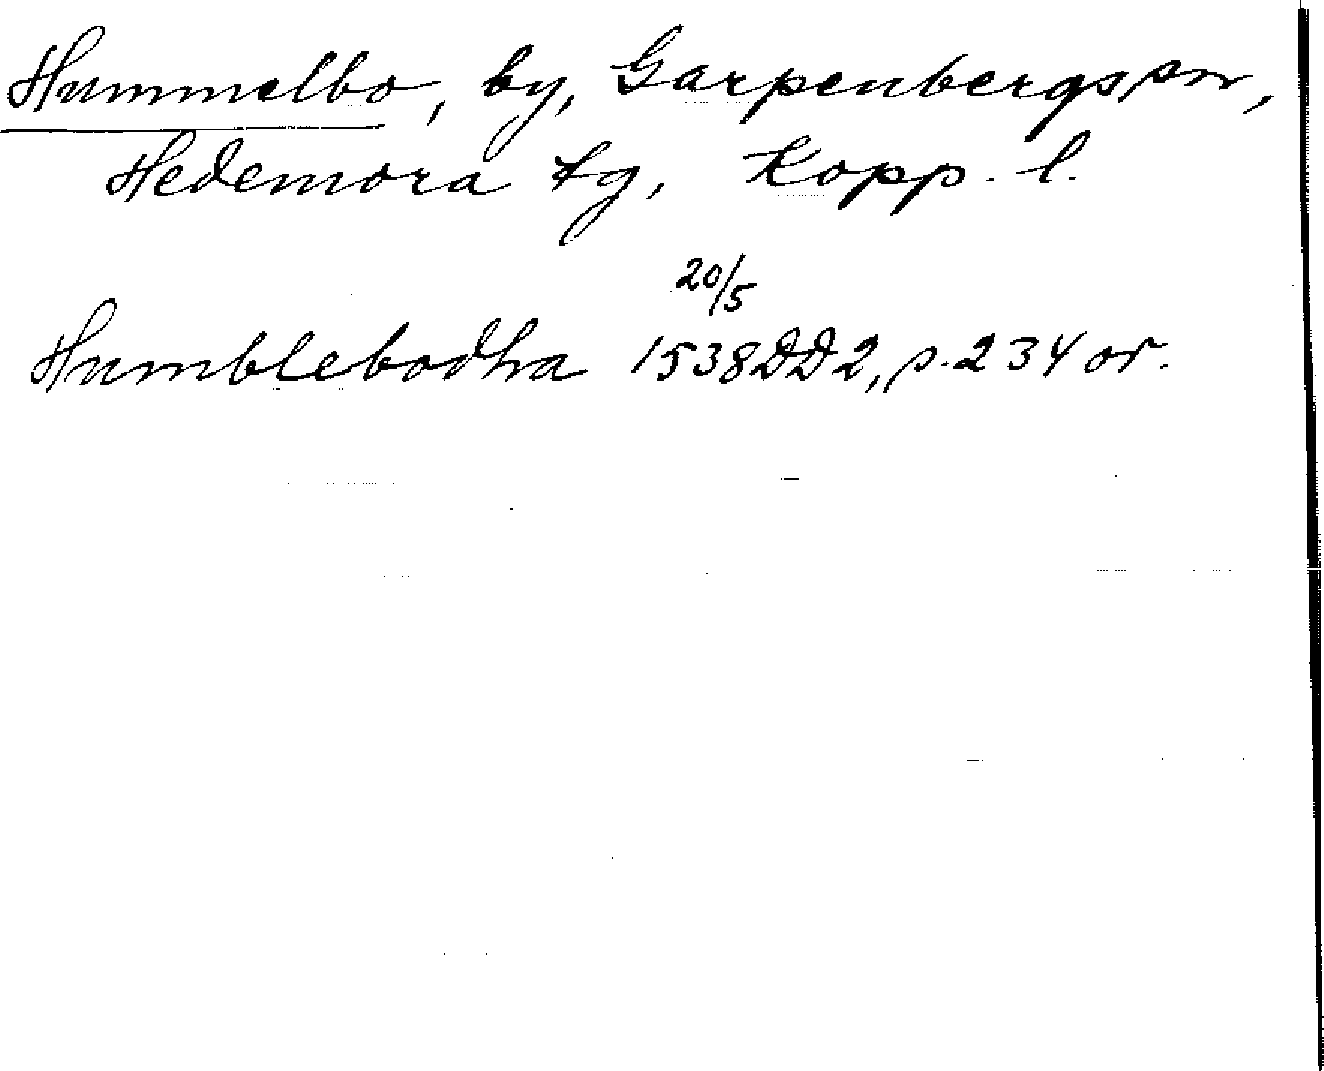 Hummelbo, by, Garpenbergs sn,
Hedemora tg, Kopp. l.
20/5
Humblebodha 1538 DD2, s. 234 or.